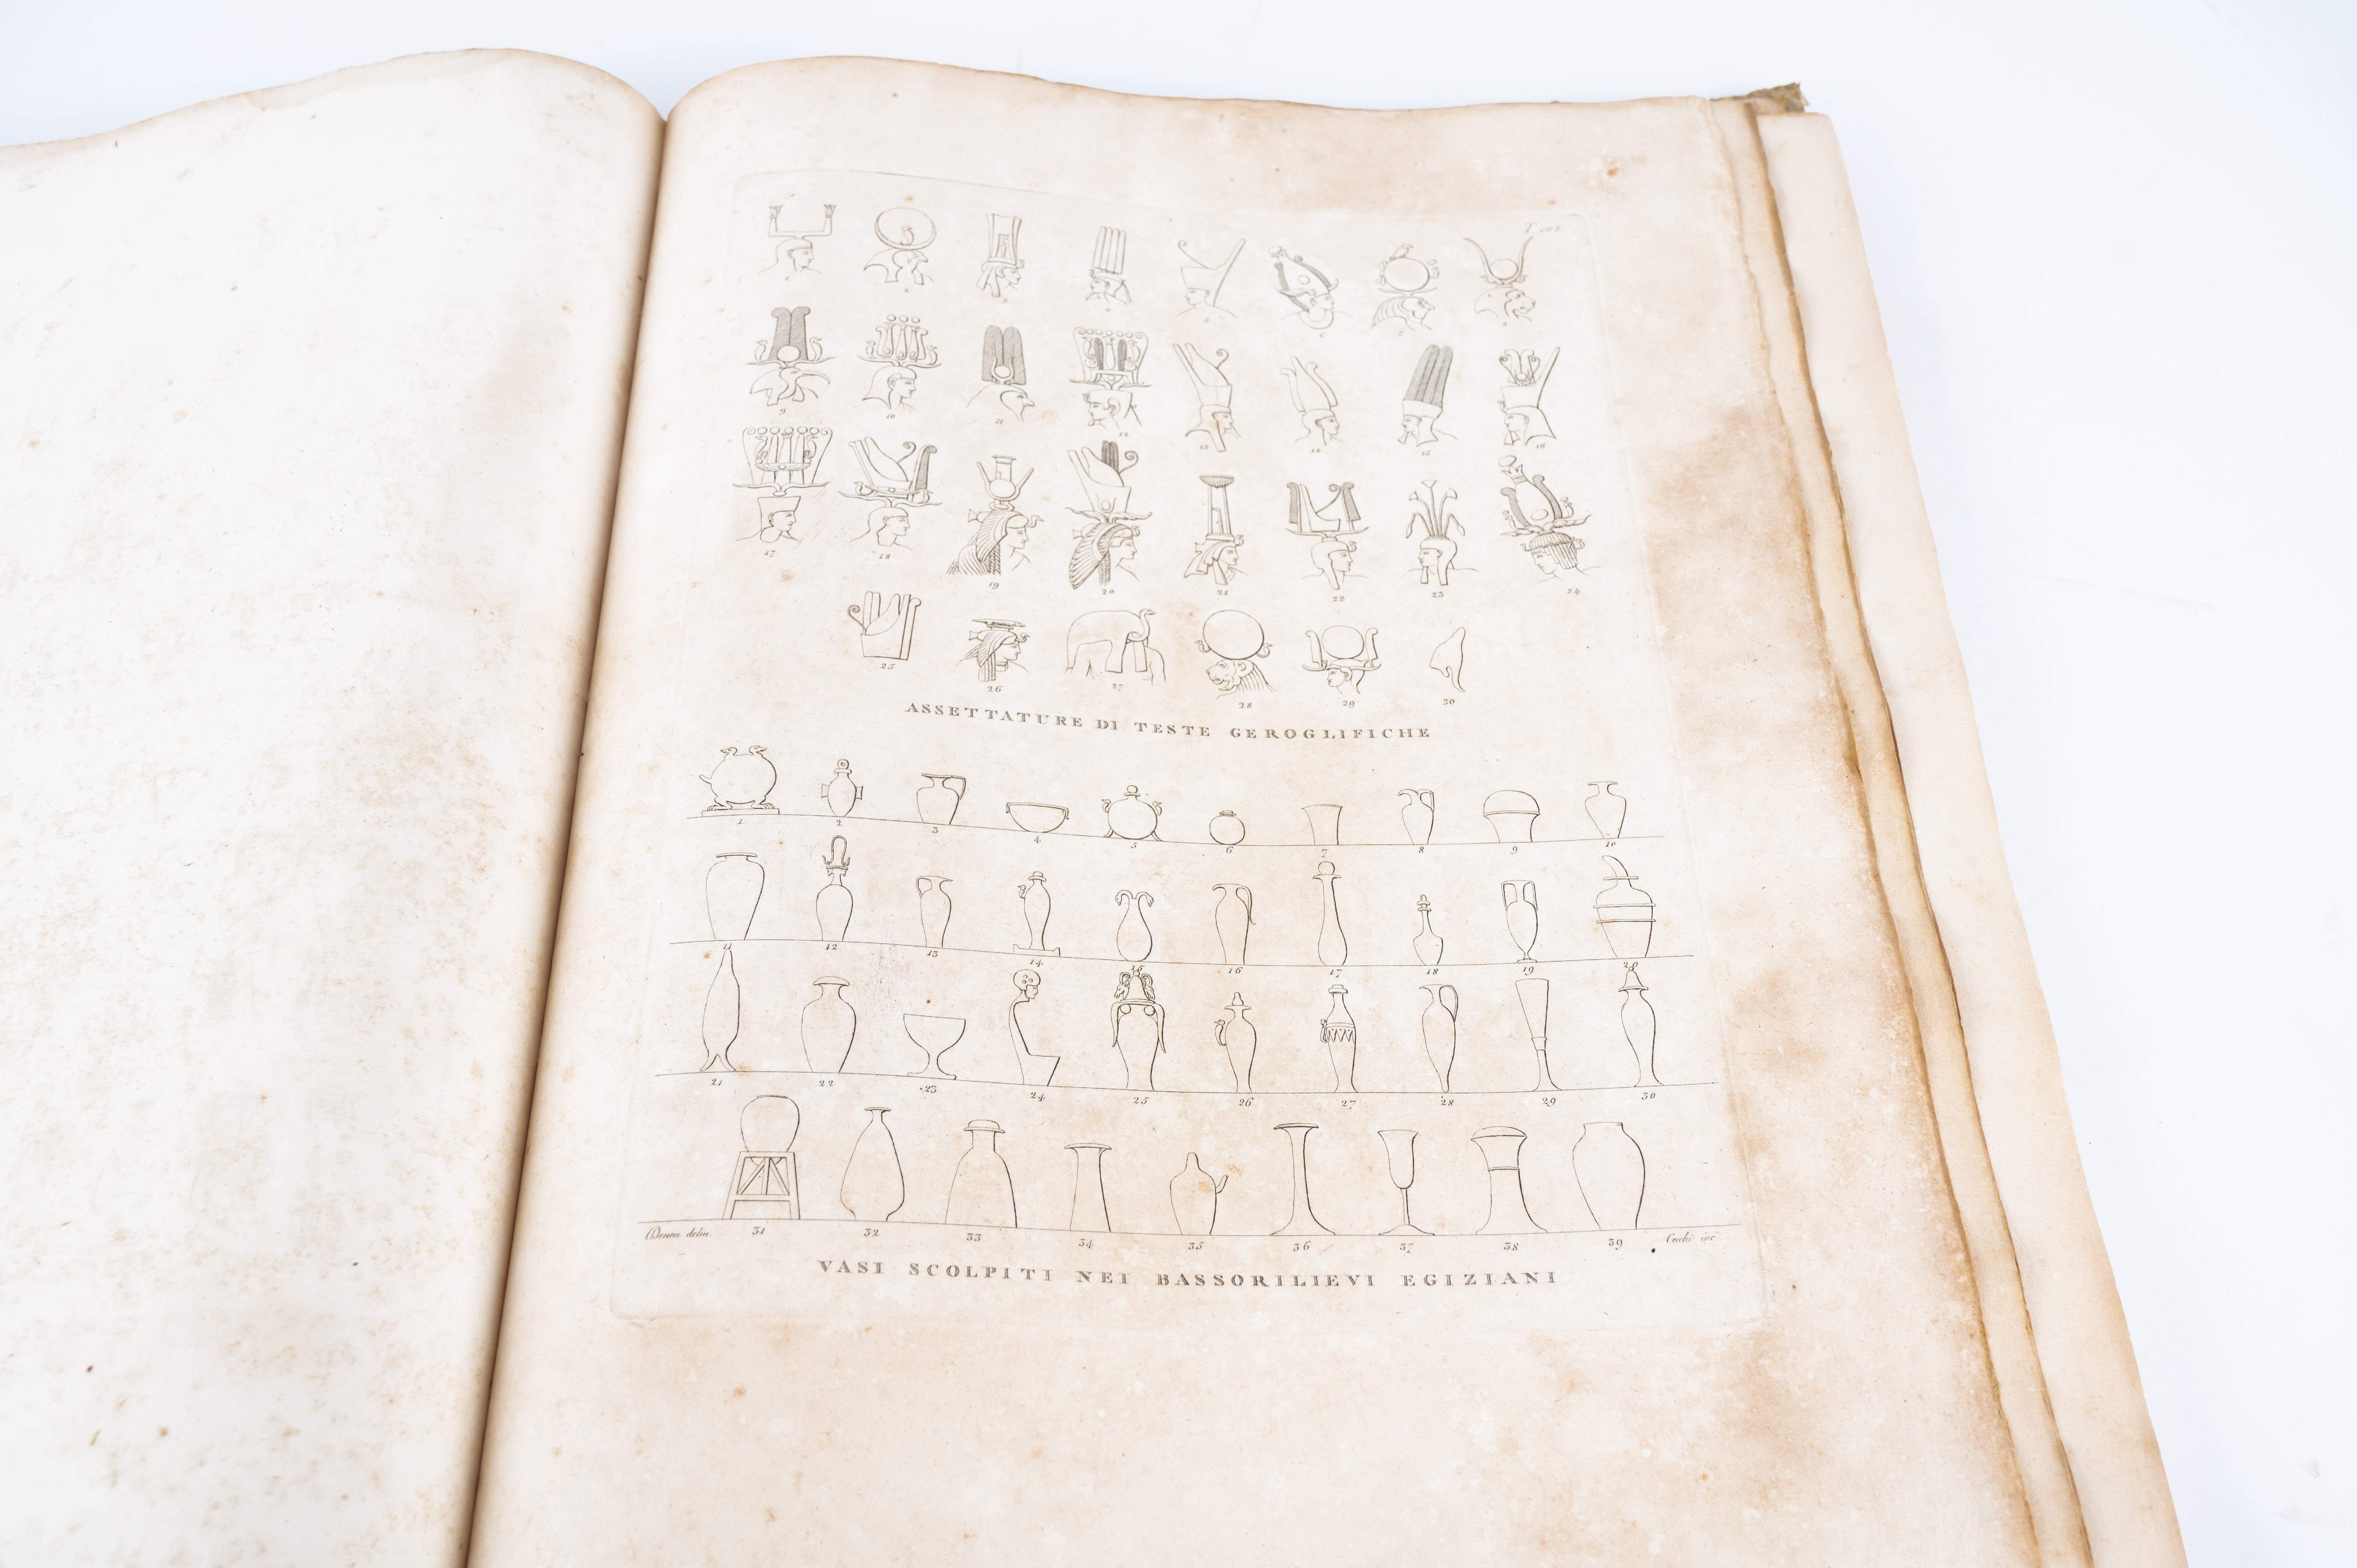 1 2 3 4 5 6 7 8
9 10 11 12 13 14 15 16
17 18 19 20 21 22 23 24
25 26 27 28 29 30
ASSETTATURE DI TESTE GEROGLIFICHE
1 2 3 4 5 6 7 8 9 10
11 12 13 14 15 16 17 18 19 20
21 22 23 24 25 26 27 28 29 30
31 32 33 34 35 36 37 38 39
Denon delin. Cecchi inc.
VASI SCOLPITI NEI BASSORILIEVI EGIZIANI